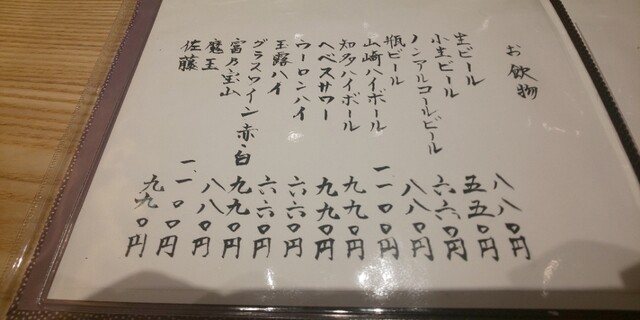 お飲物
生ビール 八八〇円
小生ビール 五五〇円
ノンアルコールビール 六六〇円
瓶ビール 八八〇円
山崎ハイボール 一、一〇〇円
知多ハイボール 九九〇円
ヘベスサワー 九九〇円
ウーロンハイ 六六〇円
玉露ハイ 六六〇円
グラスワイン赤・白 九九〇円
富乃宝山 八八〇円
魔王 一、一〇〇円
佐藤 九九〇円